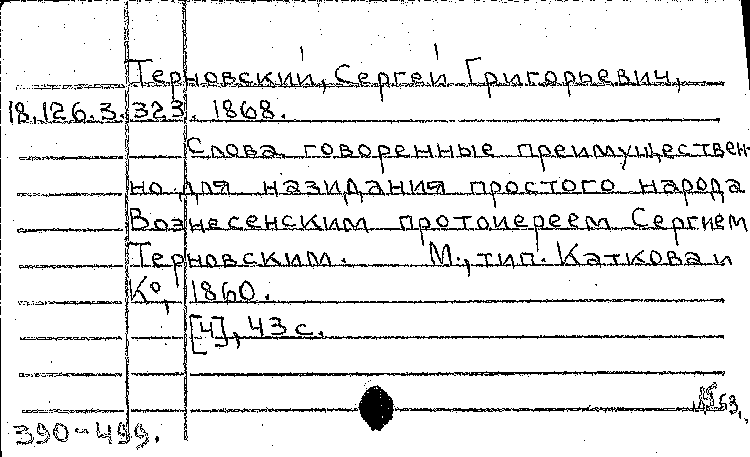 Терновский, Сергей Григорьевич,
18.126.3.323. 1868.
Слова говоренные преимуществен-
но для назидания простого народа
Вознесенским протоиереем Сергием
Терновским. М., тип. Каткова и
К°, 1860.
[4], 43 с.
63,
390-499.